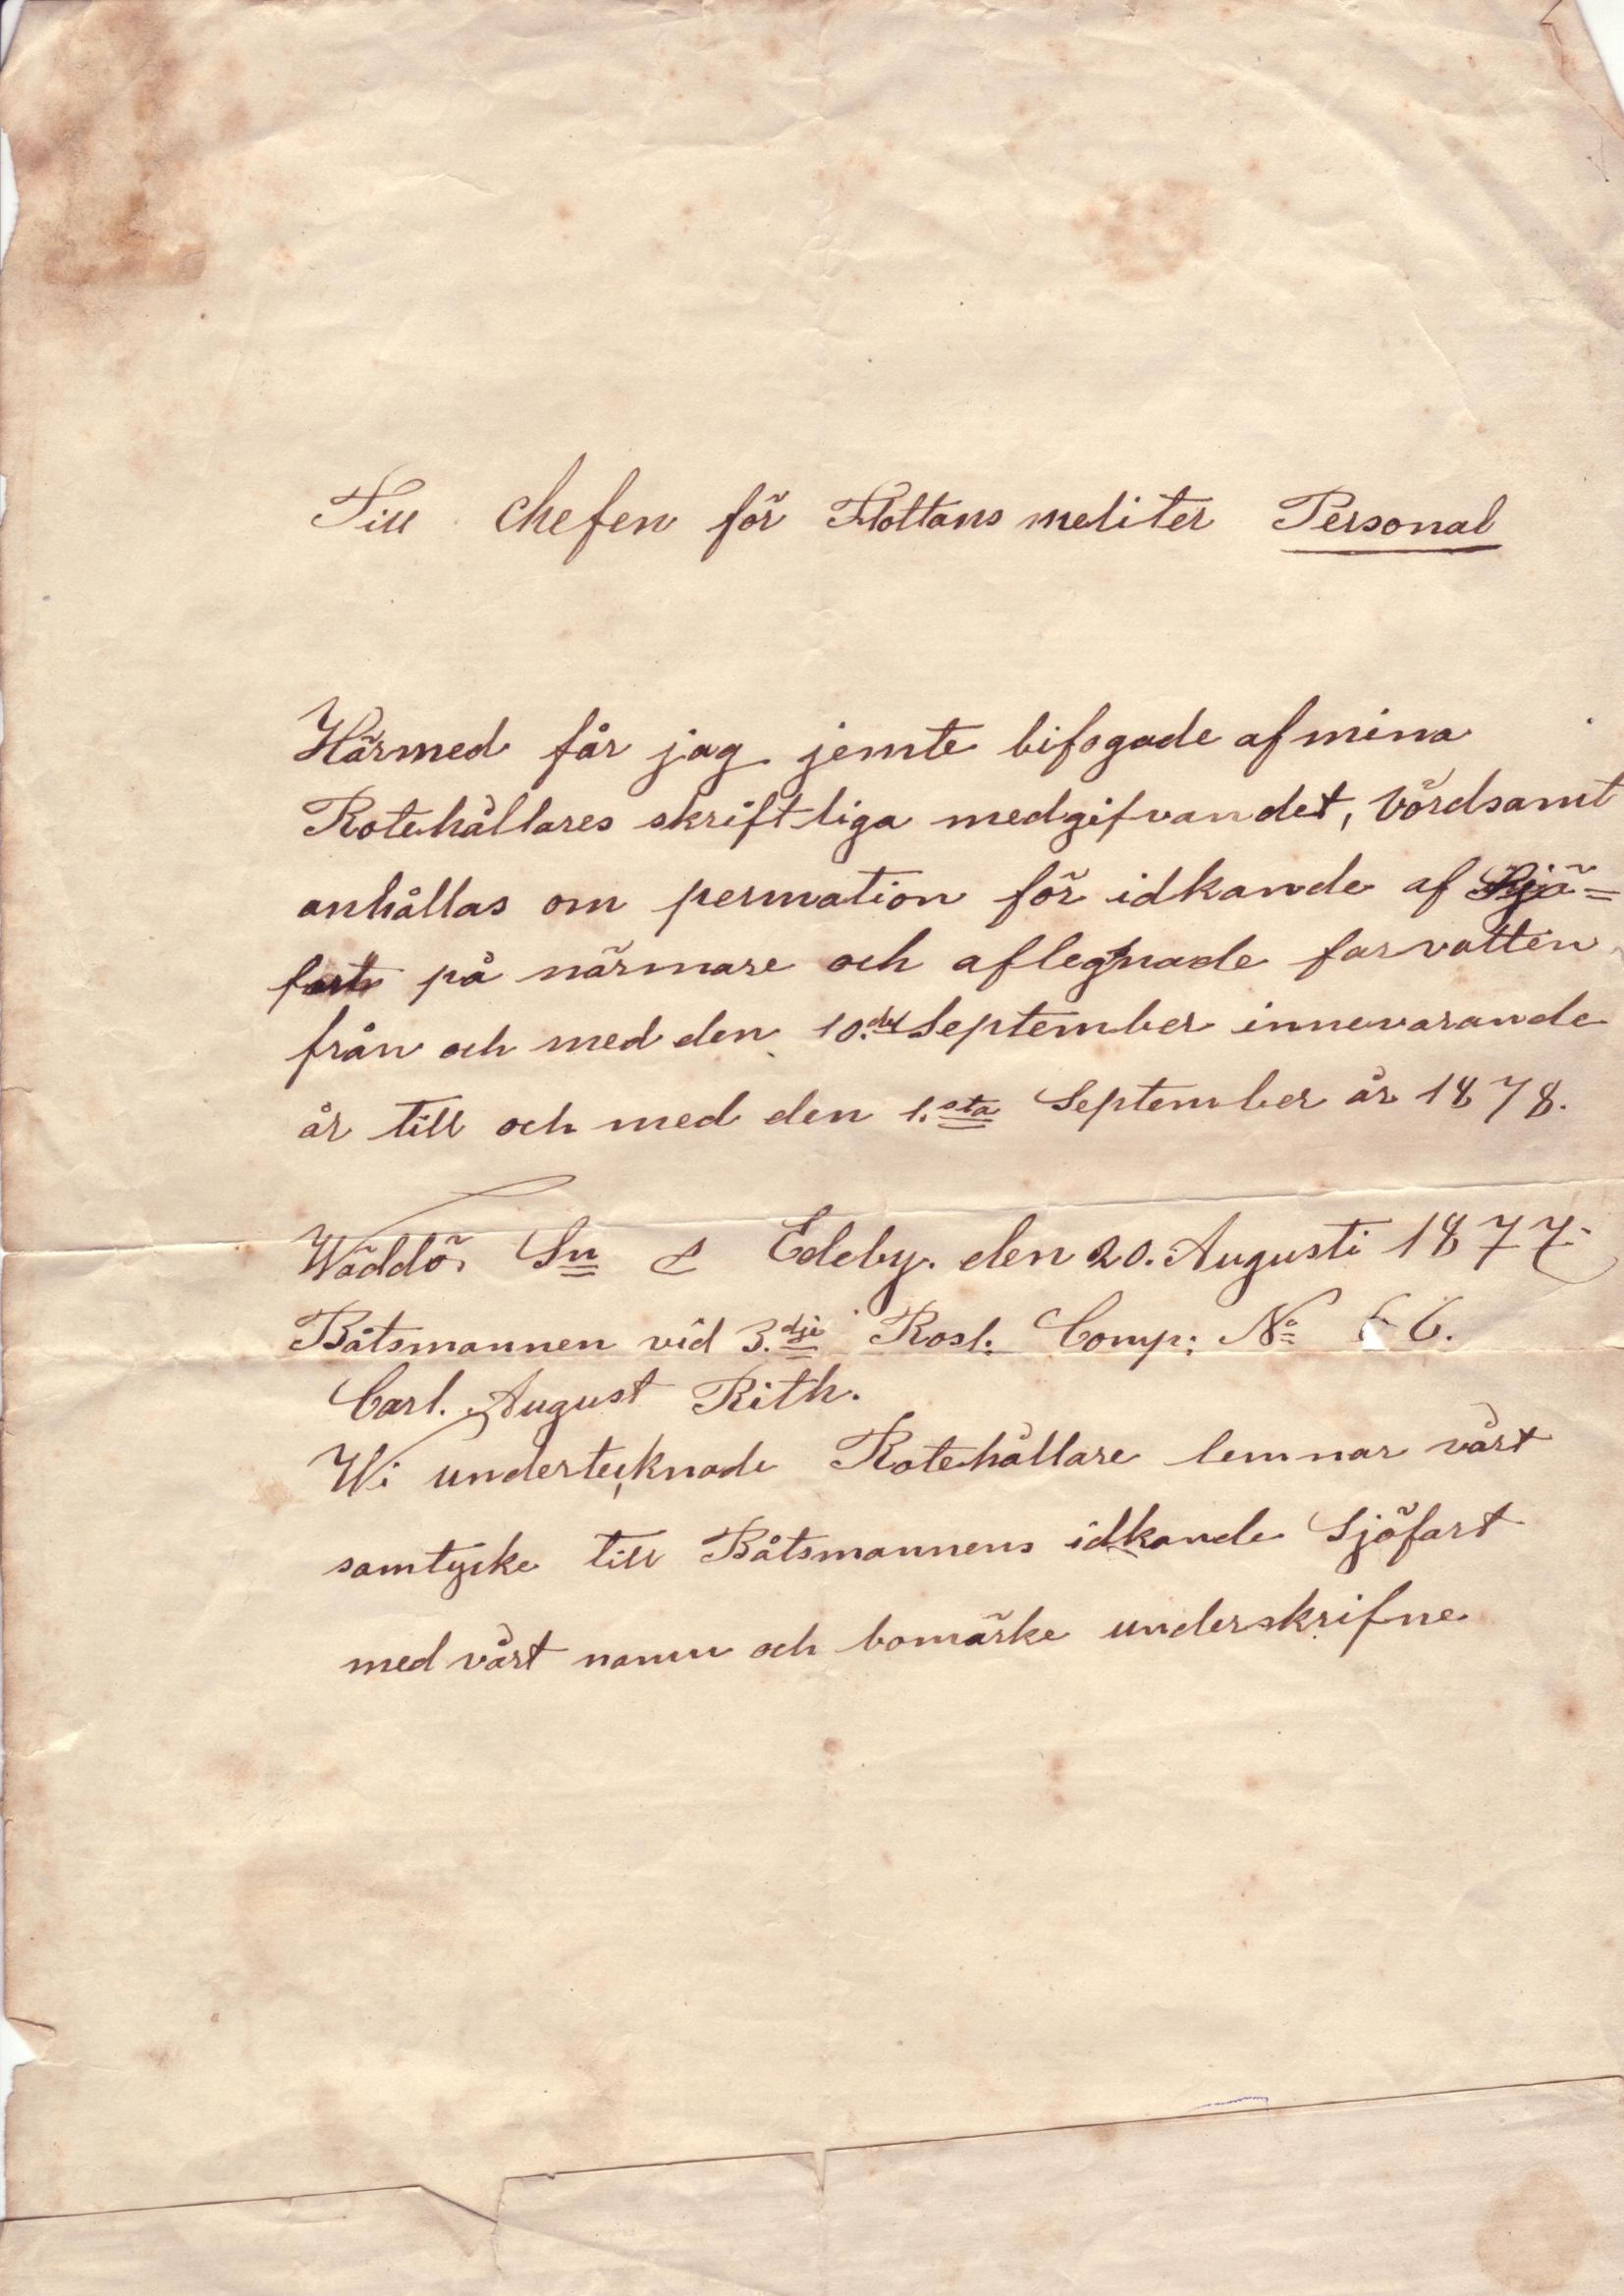 Till Chefen för Flottans meliter Personal
Härmed får jag jemte bifogade af mina
Rotehållares skriftliga medgifvandet, Vördsamt
anhållas om permation för idkande af Sjö=
fart på närmare och aflegnade farvatten
från och med den 10.de September innevarande
år till och med den 1.sta September år 1878.
Wäddö Sn & Edeby. den 20. Augusti 1877.
Båtsmannen vid 3.dje Rosl. Comp: No 66.
Carl. August Rith.
Wi undertecknade Rotehållare lemnar vårt
samtycke till Båtsmannens idkande Sjöfart
med vårt namn och bomärke underskrifne